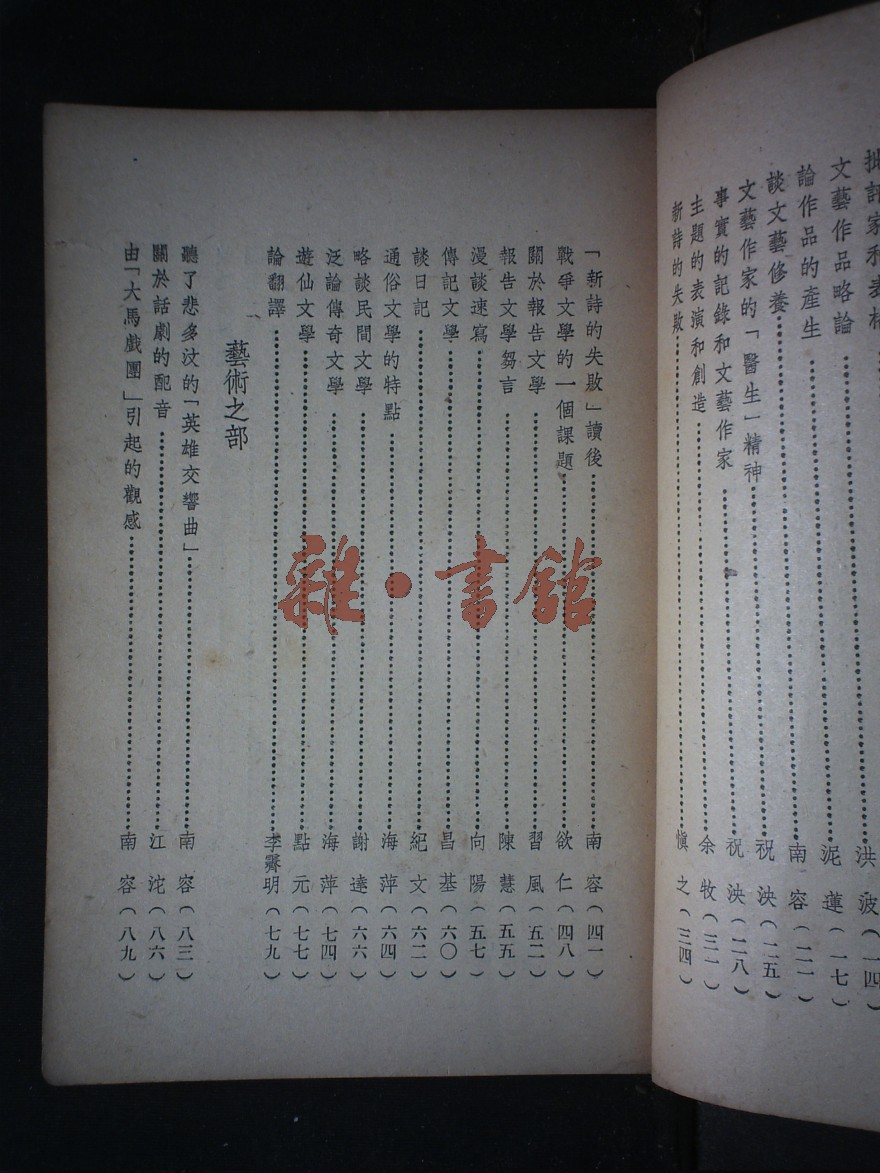 文藝作品略論……泥蓮(一七)
論作品的產生……南容(二一)
談文藝修養……祝泱(二五)
文藝作家的「醫生」精神
事實的記錄和文藝作家……祝泱(二八)
主題的表演和創造……余牧(三一)
新詩的失敗……愼之(三四)
「新詩的失敗」讀後……南容(四一)
戰爭文學的一個課題……欲仁(四八)
關於報告文學……習風(五二)
報告文學芻言……陳慧(五五)
漫談速寫……向陽(五七)
傳記文學……昌基(六〇)
談日記……紀文(六二)
通俗文學的特點……海萍(六四)
略談民間文學……謝達(六六)
泛論傳奇文學……海萍(七四)
遊仙文學……點元(七七)
論翻譯……李霽明(七九)
藝術之部
聽了悲多汶的「英雄交響曲」……南容(八三)
關於話劇的配音……江沱(八六)
由「大馬戲團」引起的觀感……南容(八九)
雜·書館